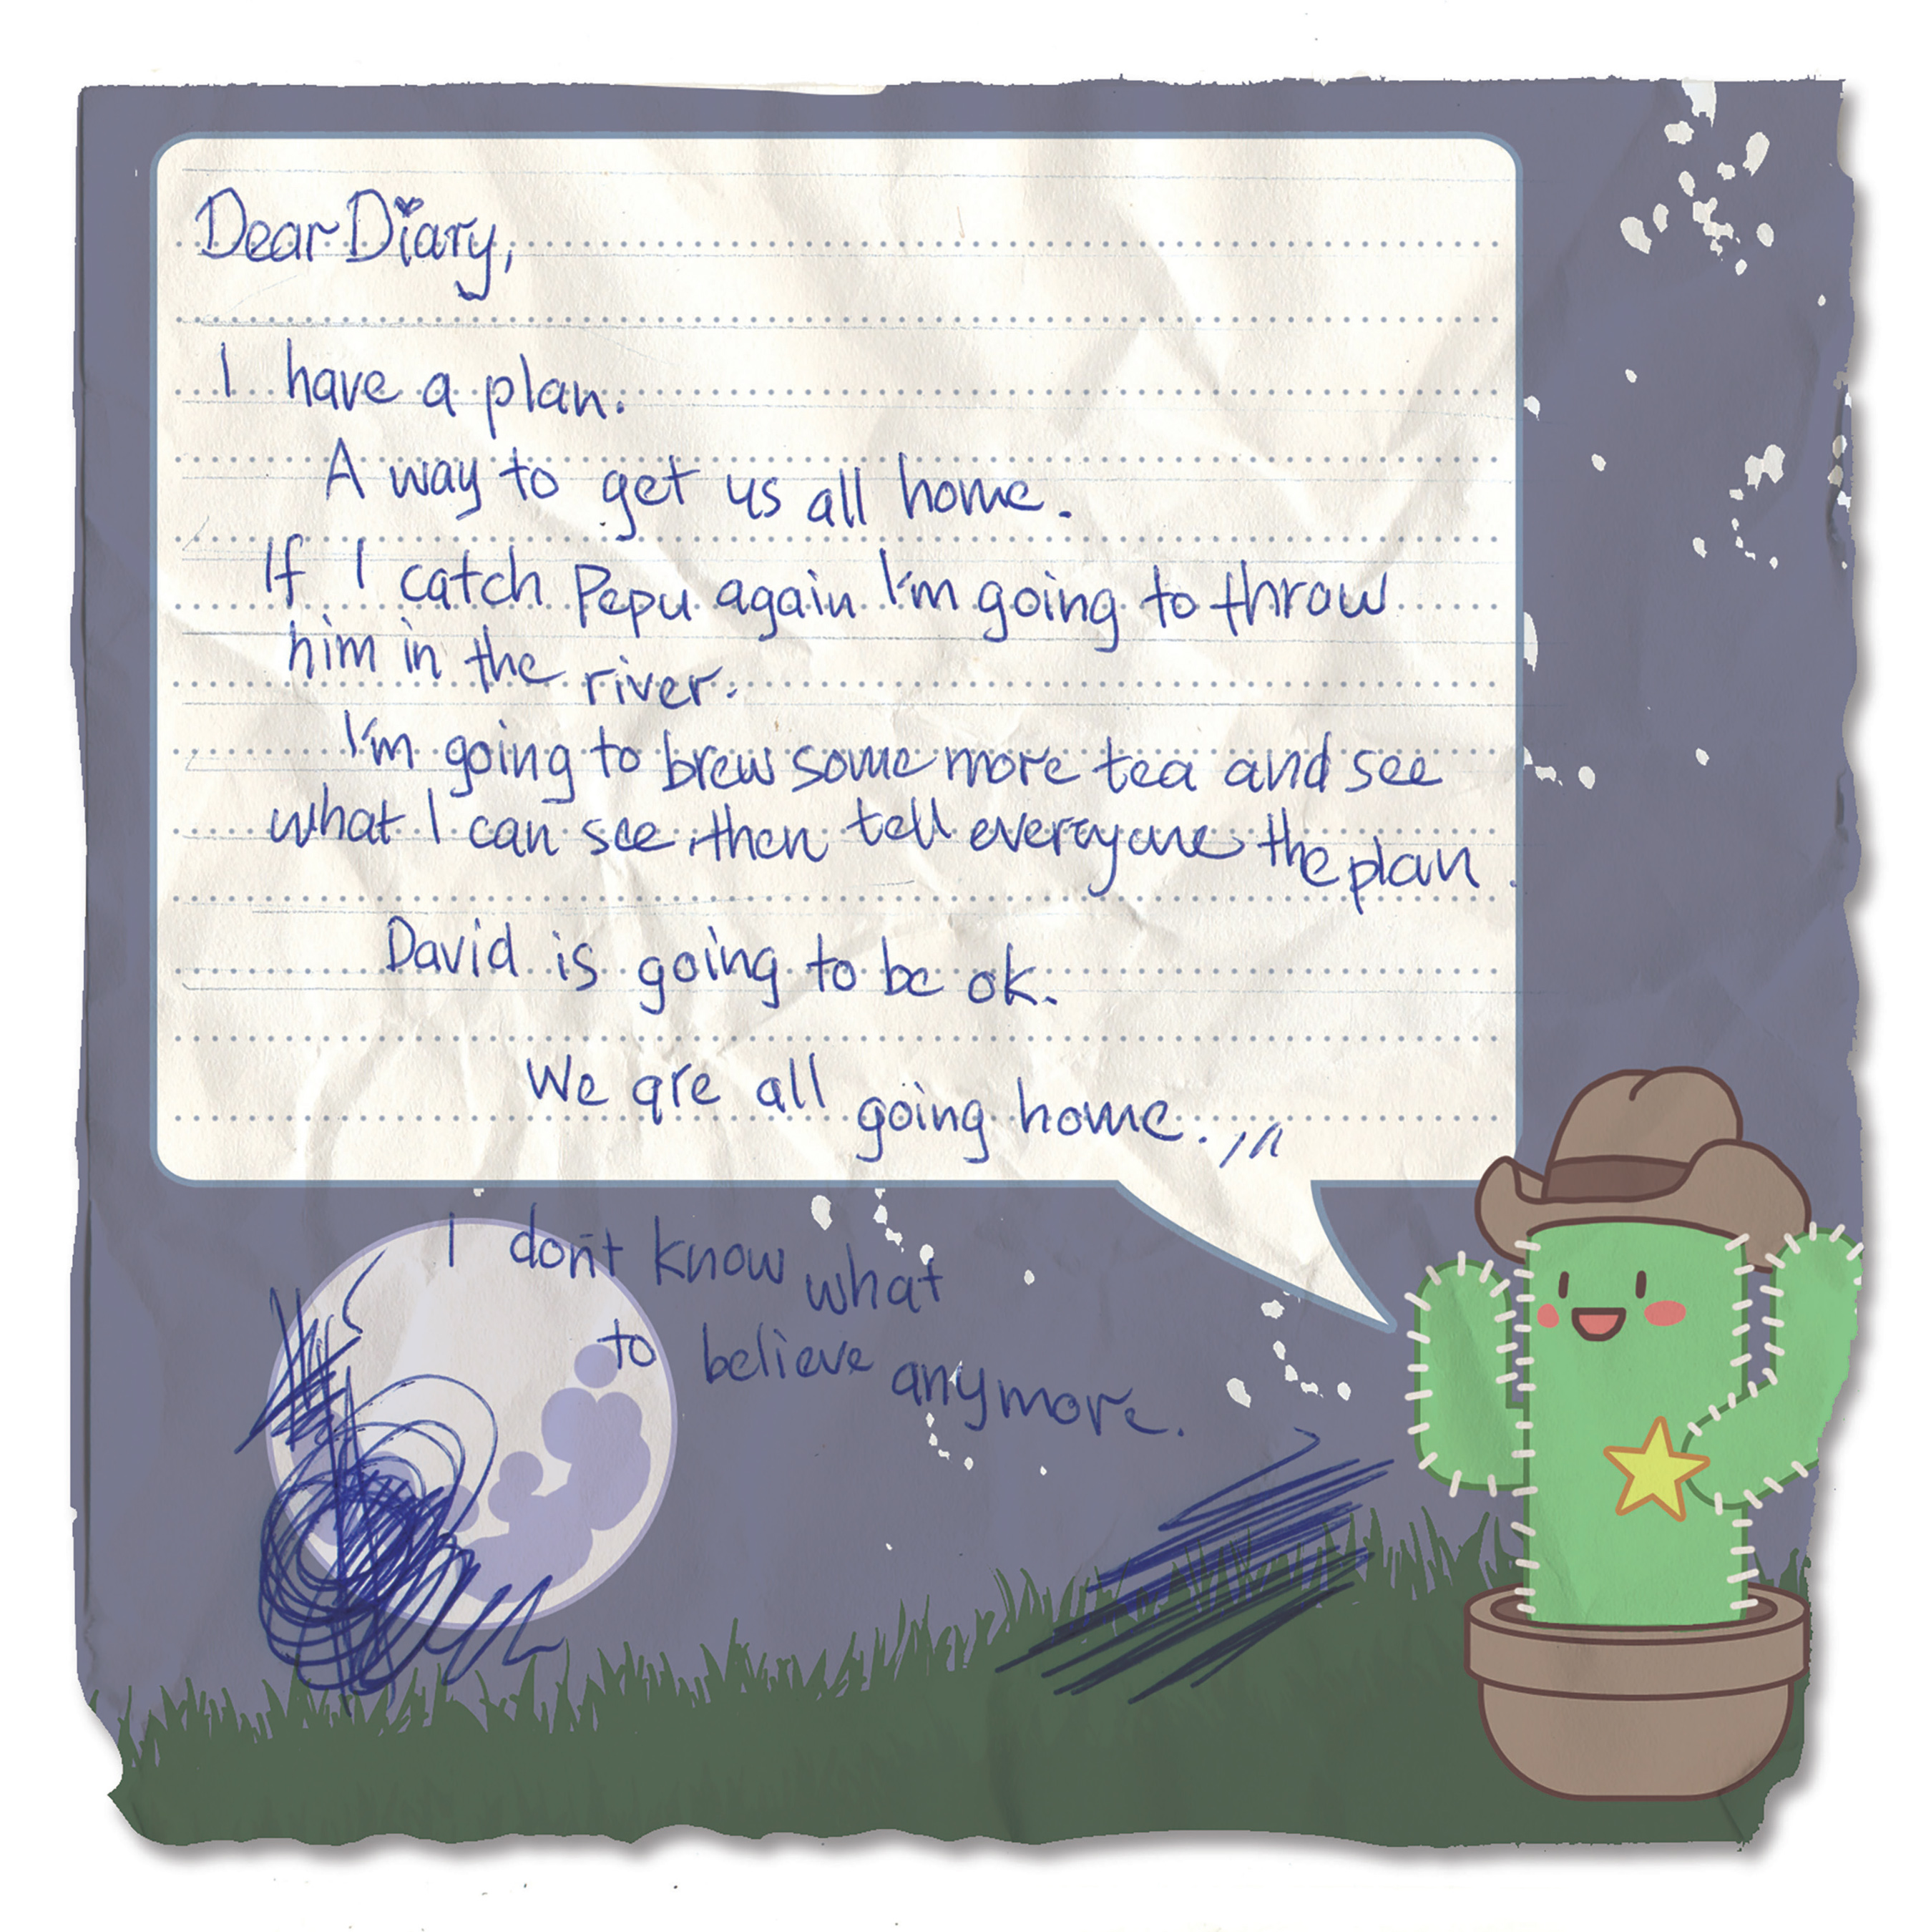 Dear Diary,
I have a plan.
A way to get us all home.
If I catch Pepu again I'm going to throw
him in the river.
I'm going to brew some more tea and see
what I can see, then tell everyone the plan.
David is going to be ok.
We are all going home.
I don't know what
to believe anymore.